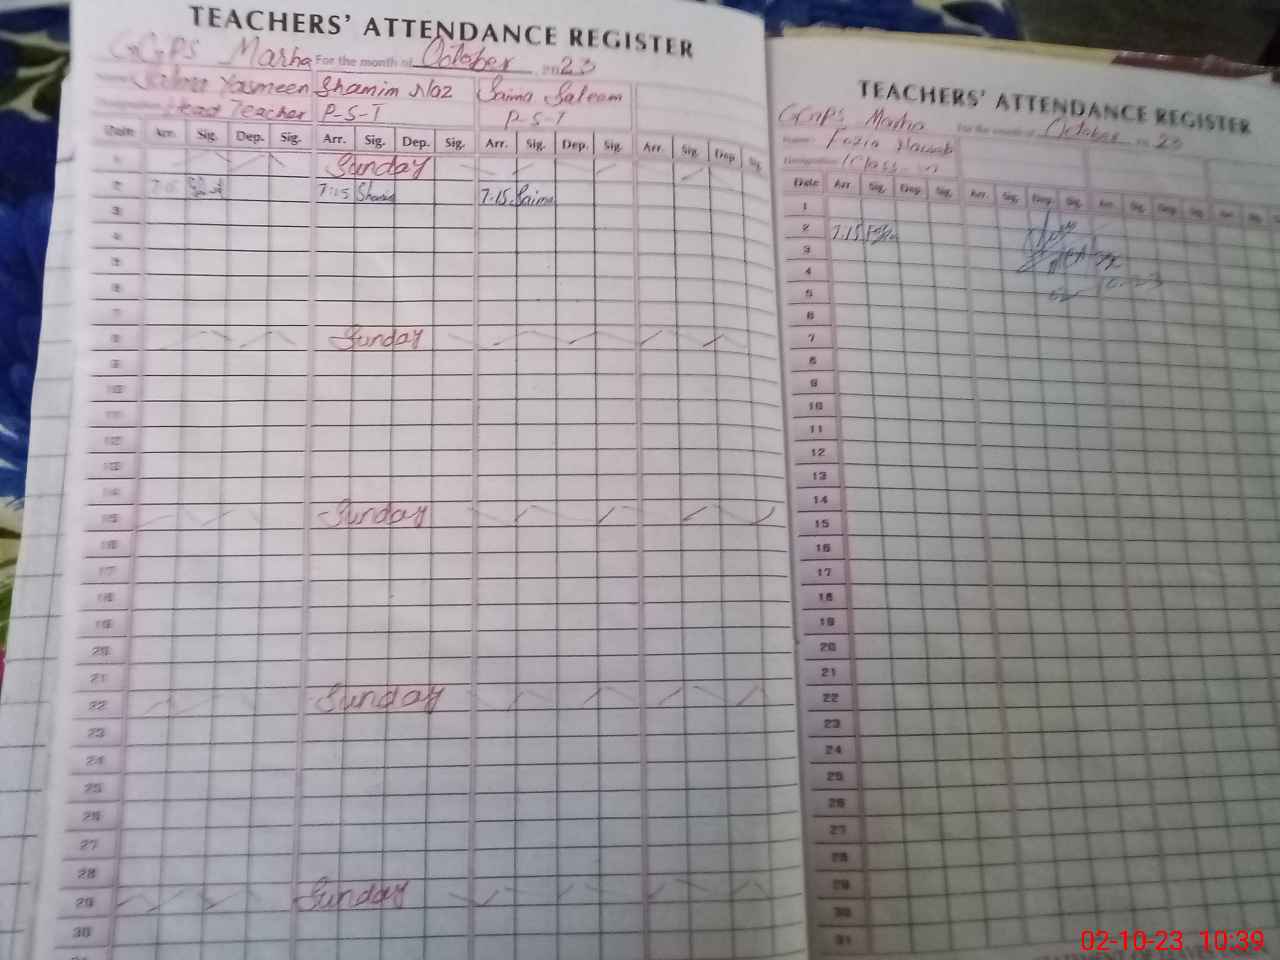 TEACHERS' ATTENDANCE REGISTER
GGPS Marha For the month of October 2023
Name Salma Yasmeen Shamim Naz Saima Saleem
Head Teacher P-S-T P-S-T
Date Arr. Sig. Dep. Sig. Arr. Sig. Dep. Sig. Arr. Sig. Dep. Sig. Arr. Sig. Dep. Sig.
1 Sunday
2 7:15 Shamim 7.15 Saima
3
4
5
6
7
8 Sunday
9
10
11
12
13
14
15 Sunday
16
17
18
19
20
21
22 Sunday
23
24
25
26
27
28
29 Sunday
30
TEACHERS' ATTENDANCE REGISTER
GGPS Marha For the month of October 23
Name Fozia
Designation Class
Date Arr. Sig. Dep. Sig. Arr. Sig. Dep. Sig. Arr. Sig. Dep. Sig. Arr. Sig.
1
2 7.15
3
4
5
6
7
8
9
10
11
12
13
14
15
16
17
18
19
20
21
22
23
24
25
26
27
28
29
30
31
02-10-23 10:39